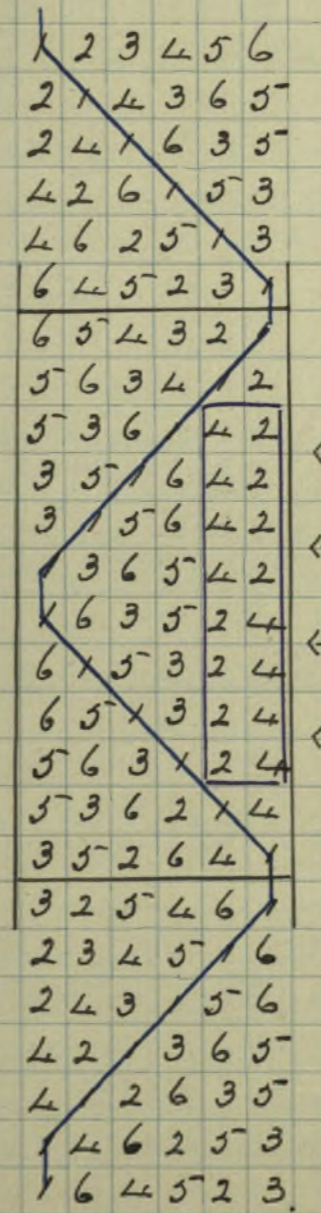 1 2 3 4 5 6
2 1 4 3 6 5
2 4 1 6 3 5
4 2 6 1 5 3
4 6 2 5 1 3
6 4 5 2 3 1
6 5 4 3 2 1
5 6 3 4 1 2
5 3 6 1 4 2
3 5 1 6 4 2
3 1 5 6 4 2
1 3 6 5 4 2
1 6 3 5 2 4
6 1 5 3 2 4
6 5 1 3 2 4
5 6 3 1 2 4
5 3 6 2 1 4
3 5 2 6 4 1
3 2 5 4 6 1
2 3 4 5 1 6
2 4 3 1 5 6
4 2 1 3 6 5
4 1 2 6 3 5
1 4 6 2 5 3
1 6 4 5 2 3.